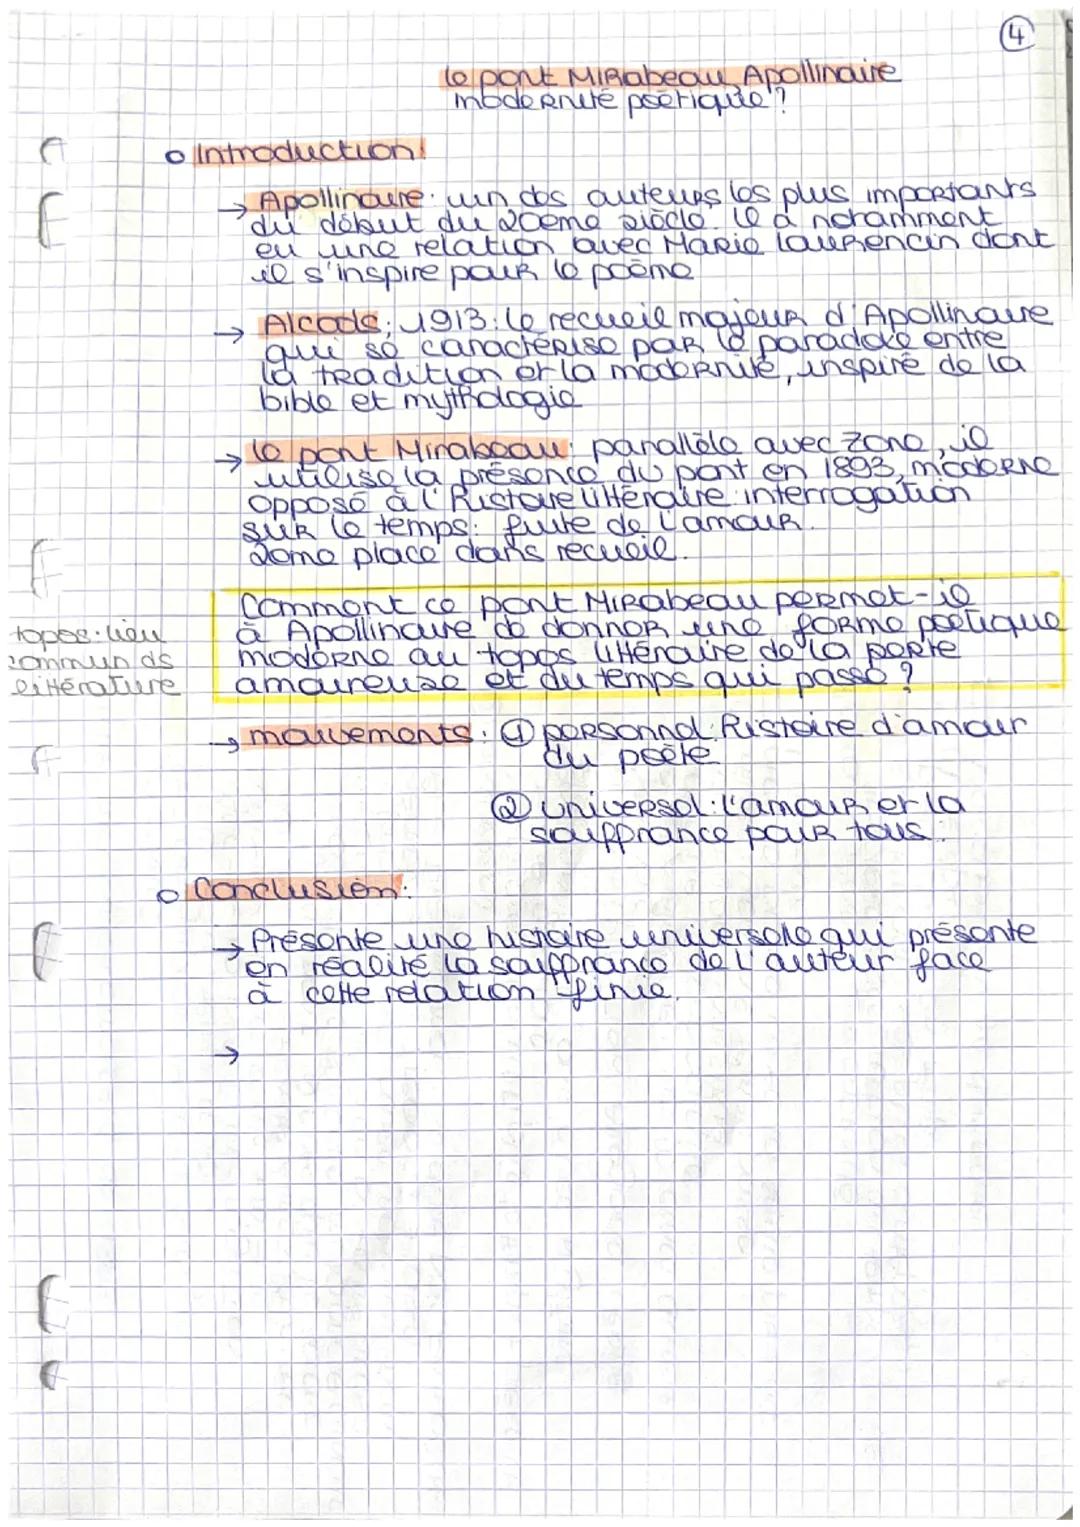 4
le pont Mirabeau, Apollinaire
modernité poétique ?
Introduction:
→ Apollinaire: un des auteurs les plus importants
du début du 20ème siècle. Il a notamment
eu une relation avec Marie Laurencin dont
il s'inspire pour le poème
→ Alcools; 1913: le recueil majeur d'Apollinaire
qui se caractérise par le paradoxe entre
la tradition et la modernité, inspiré de la
bible et mythologie
→ le pont Mirabeau: parallèle avec Zone, il
utilise la présence du pont en 1893, moderne
opposé à l'histoire littéraire: interrogation
sur le temps: fuite de l'amour.
2ème place dans recueil.
Comment ce pont Mirabeau permet-il
à Apollinaire de donner une forme poétique
moderne au topos littéraire de la perte
amoureuse et du temps qui passe ?
topos: lieu
commun ds
littérature
→ mouvements: ① personnel: histoire d'amour
du poète
② universel: l'amour et la
souffrance pour tous.
Conclusion:
→ Présente une histoire universelle qui présente
en réalité la souffrance de l'auteur face
à cette relation finie.
→